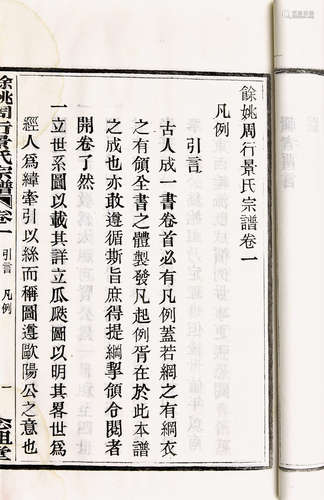 餘姚周行景氏宗譜卷一
凡例
引言
古人成一書卷首必有凡例蓋若網之有綱衣
之有領全書之體製發凡起例胥在於此本譜
之成也亦敢遵循斯旨庶得提綱挈領令閱者
開卷了然
一立世系圖以載其詳立瓜瓞圖以明其畧世爲
經人爲緯牽引以絲而稱圖遵歐陽公之意也
餘姚周行景氏宗譜 卷一 引言 凡例 一